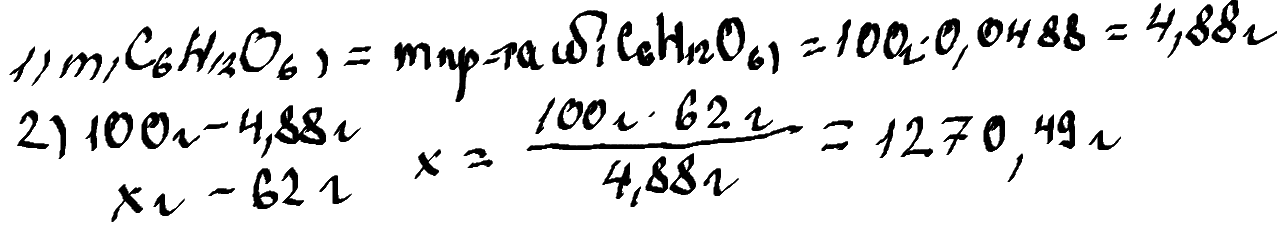 1) m(C₆H₁₂O₆) = mпр-та · ω(C₆H₁₂O₆) = 100г · 0,0488 = 4,88г
2) 100г – 4,88г
xг – 62г
x = (100г · 62г) / 4,88г = 1270,49г